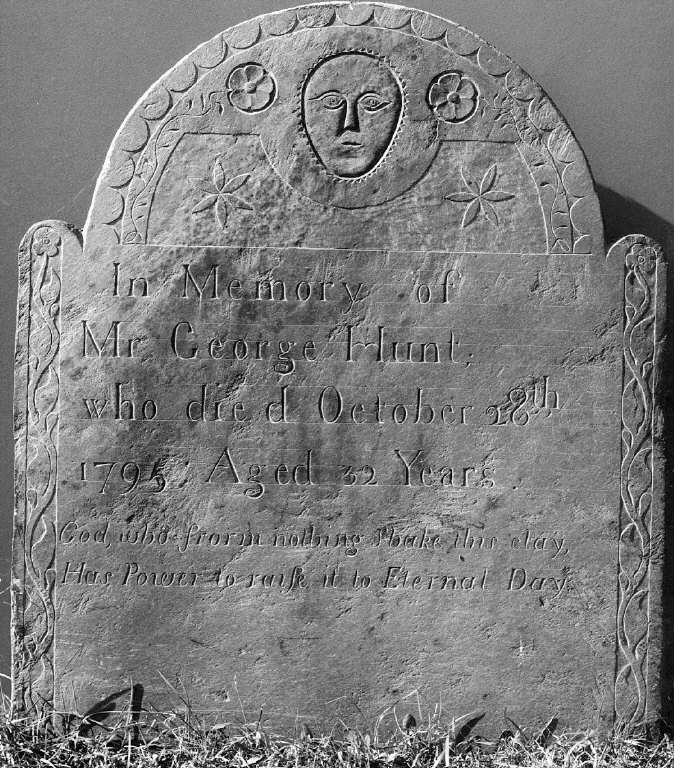 In Memory of
Mr George Hunt,
who died October 28th
1795. Aged 32 Years.
God, who from nothing spake this clay,
Has Power to raiſe it to Eternal Day.